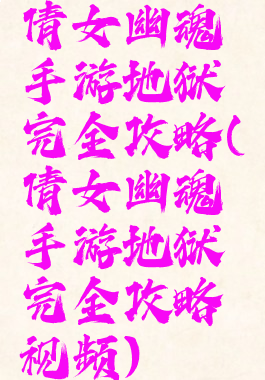 倩女幽魂
手游地狱
完全攻略(
倩女幽魂
手游地狱
完全攻略
视频)